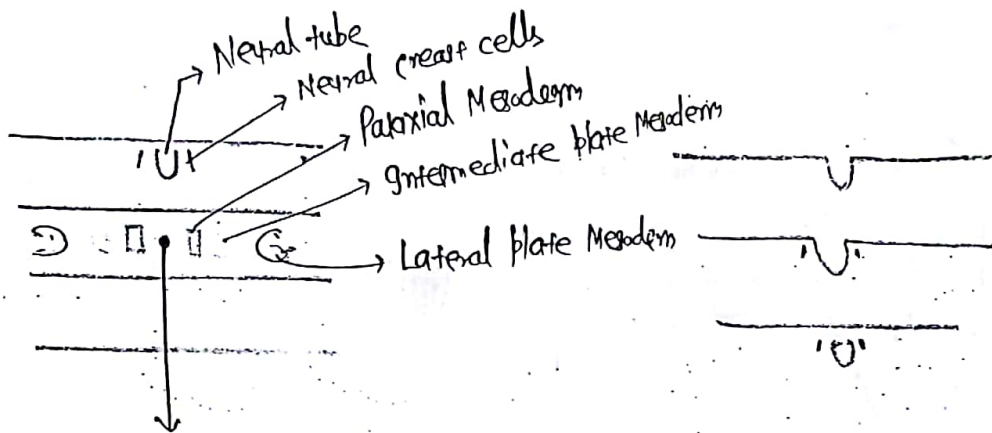 Neural tube
Neural crest cells
Paraxial Mesoderm
Intermediate plate Mesoderm
Lateral plate Mesoderm